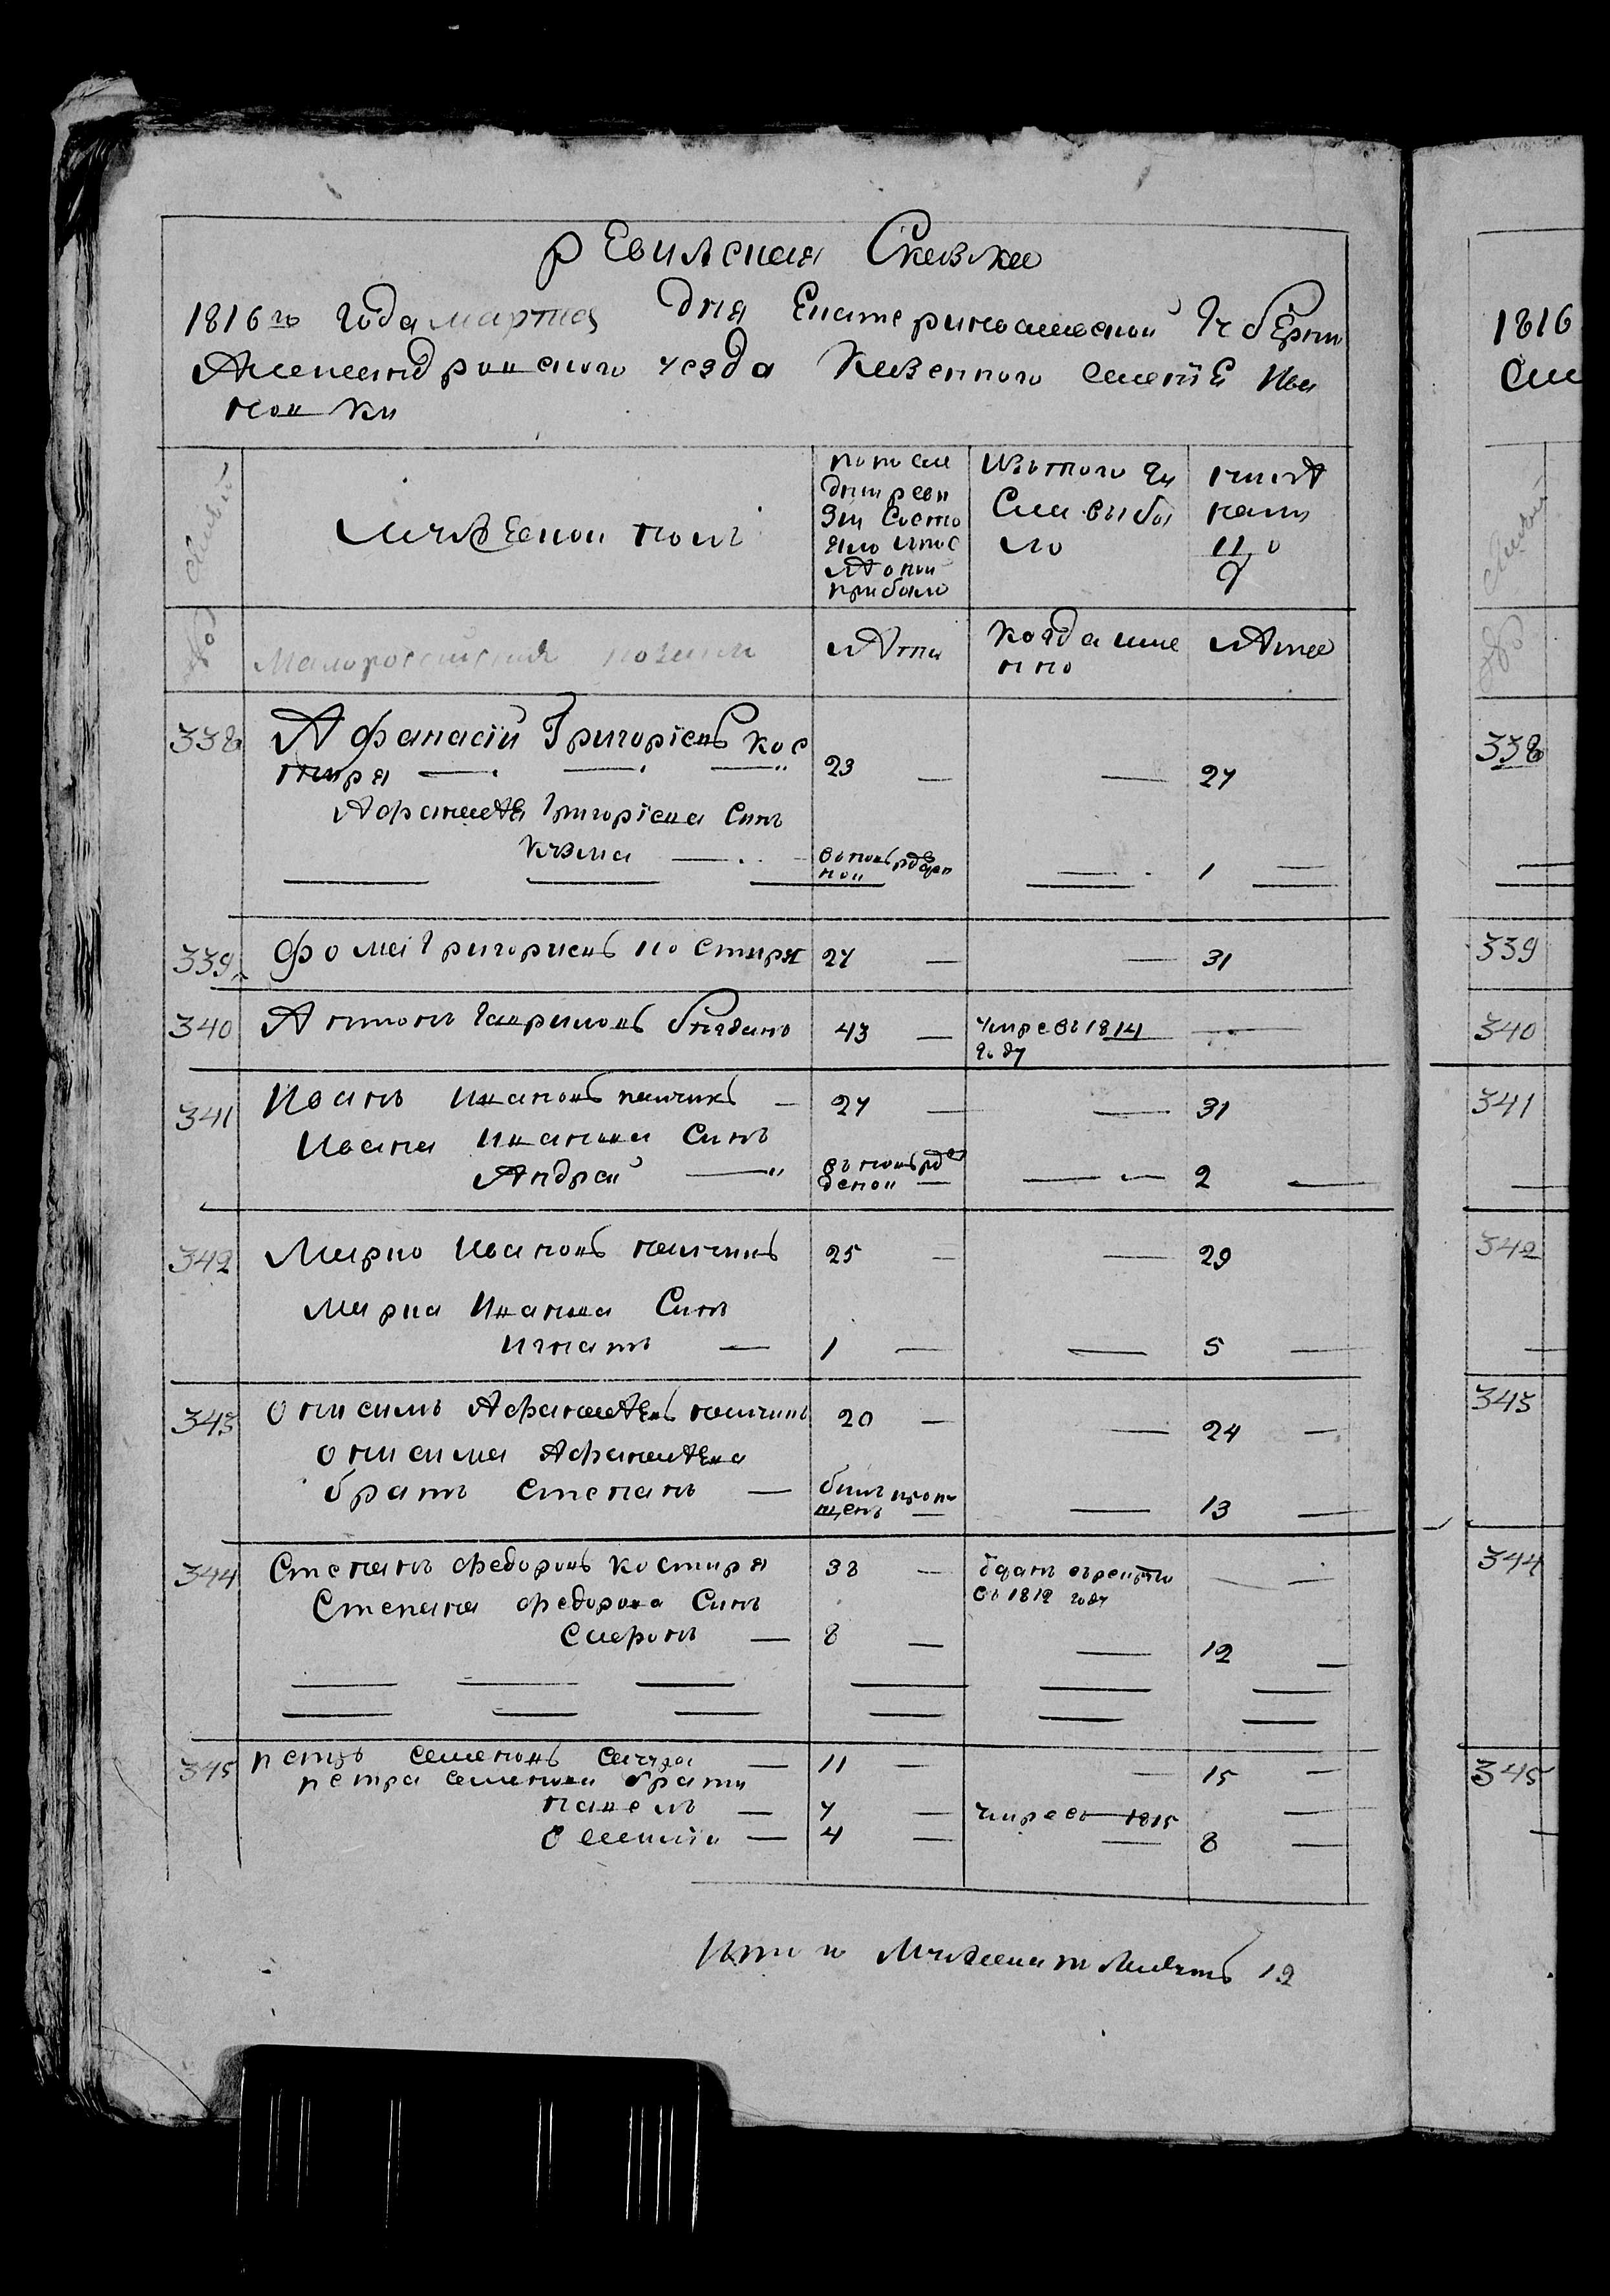 ревизская Сказка
1816го года марта дня Екатеринославской Губерни
Александровского уезда казенного селенiе Ива
новки
Семьи
мужеской полъ
попосле
дни реви
зи состо
яло ипос
лѣ оной
прибыло
Изътого чи
сла выбы
ло
нынѣ
налицо
Малоросийския козаки
лѣты
когда име
нно
лѣта
338
Афанасiй Григорiевъ кос
тыря
23
27
Афанасѣя Григорiева Сынъ
кузма
вновь рожден
ной
1
339
Фома Григориевъ костыря
27
31
340
Антонъ Гавриловъ
43
умре въ 1814
году
341
Иванъ Ивановъ
27
31
Ивана Иванова Сынъ
Андрей
вновь рож
деной
2
342
Марко Ивановъ
25
29
Марка Иванова Сынъ
Игнатъ
1
5
343
Онисимъ Афанасѣевъ
20
24
Онисима Афанасѣева
братъ Степанъ
былъ пропу
щенъ
13
344
Степанъ Федоровъ костыря
38
отданъ въ рекруты
въ 1812 году
Степана Федорова Сынъ
Сафронъ
8
12
345
петръ Семеновъ
11
15
петра Семенова браты
павелъ
7
умре въ 1815
4
8
Итого Мужеска полу 12
1816
338
339
340
341
342
343
344
345